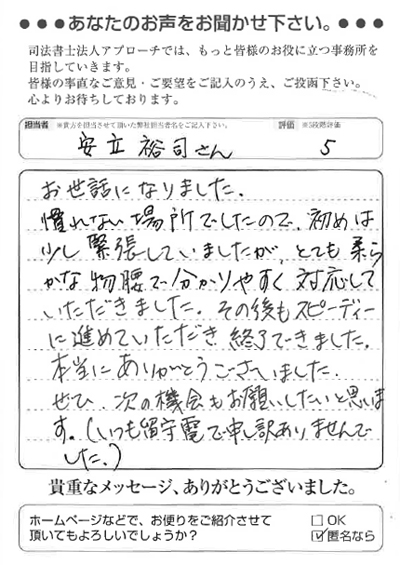 ●●●あなたのお声をお聞かせ下さい。●●●
司法書士法人アプローチでは、もっと皆様のお役に立つ事務所を
目指していきます。
皆様の率直なご意見・ご要望をご記入のうえ、ご投函下さい。
心よりお待ちしております。
担当者 ※貴方を担当させて頂いた弊社担当者名をご記入下さい。 評価 ※5段階評価
安立裕司さん 5
お世話になりました。
慣れない場所でしたので、初めは
少し緊張していましたが、とても柔ら
かな物腰で分かりやすく対応して
いただきました。その後もスピーディー
に進めていただき終了できました。
本当にありがとうございました。
ぜひ、次の機会もお願いしたいと思いま
す。(いつも留守電で申し訳ありませんで
した。)
貴重なメッセージ、ありがとうございました。
ホームページなどで、お便りをご紹介させて
頂いてもよろしいでしょうか?
□OK
☑匿名なら